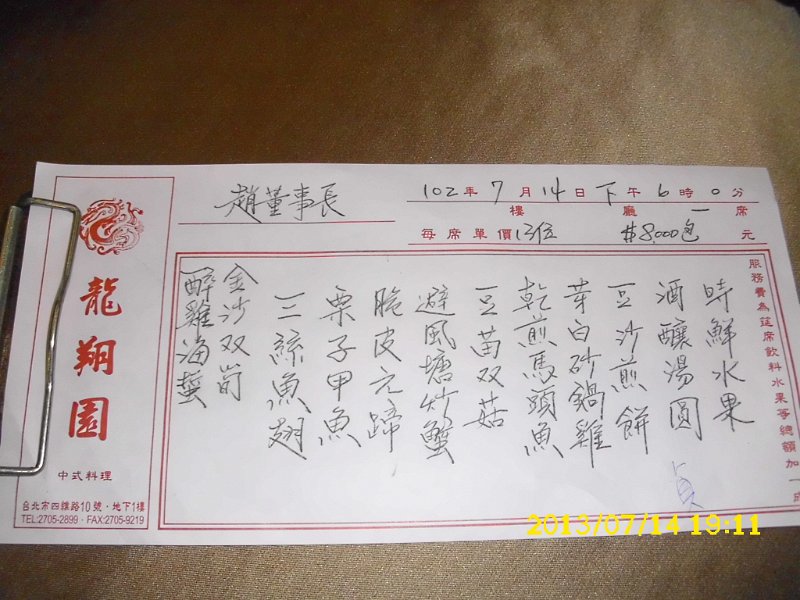 趙董事長
102年7月14日下午6時0分
樓 廳 一 席
每席單價12位 $8,000包 元
龍翔園
中式料理
台北市四維路10號・地下1樓
TEL:2705-2899・FAX:2705-9219
醉雞海蜇
金沙双筍
三絲魚翅
栗子甲魚
脆皮元蹄
避風塘炒蟹
豆苗双菇
乾煎馬頭魚
芽白砂鍋雞
豆沙煎餅
酒釀湯圓
時鮮水果
服務費為筵席飲料水果等總額加一成
2013/07/14 19:11